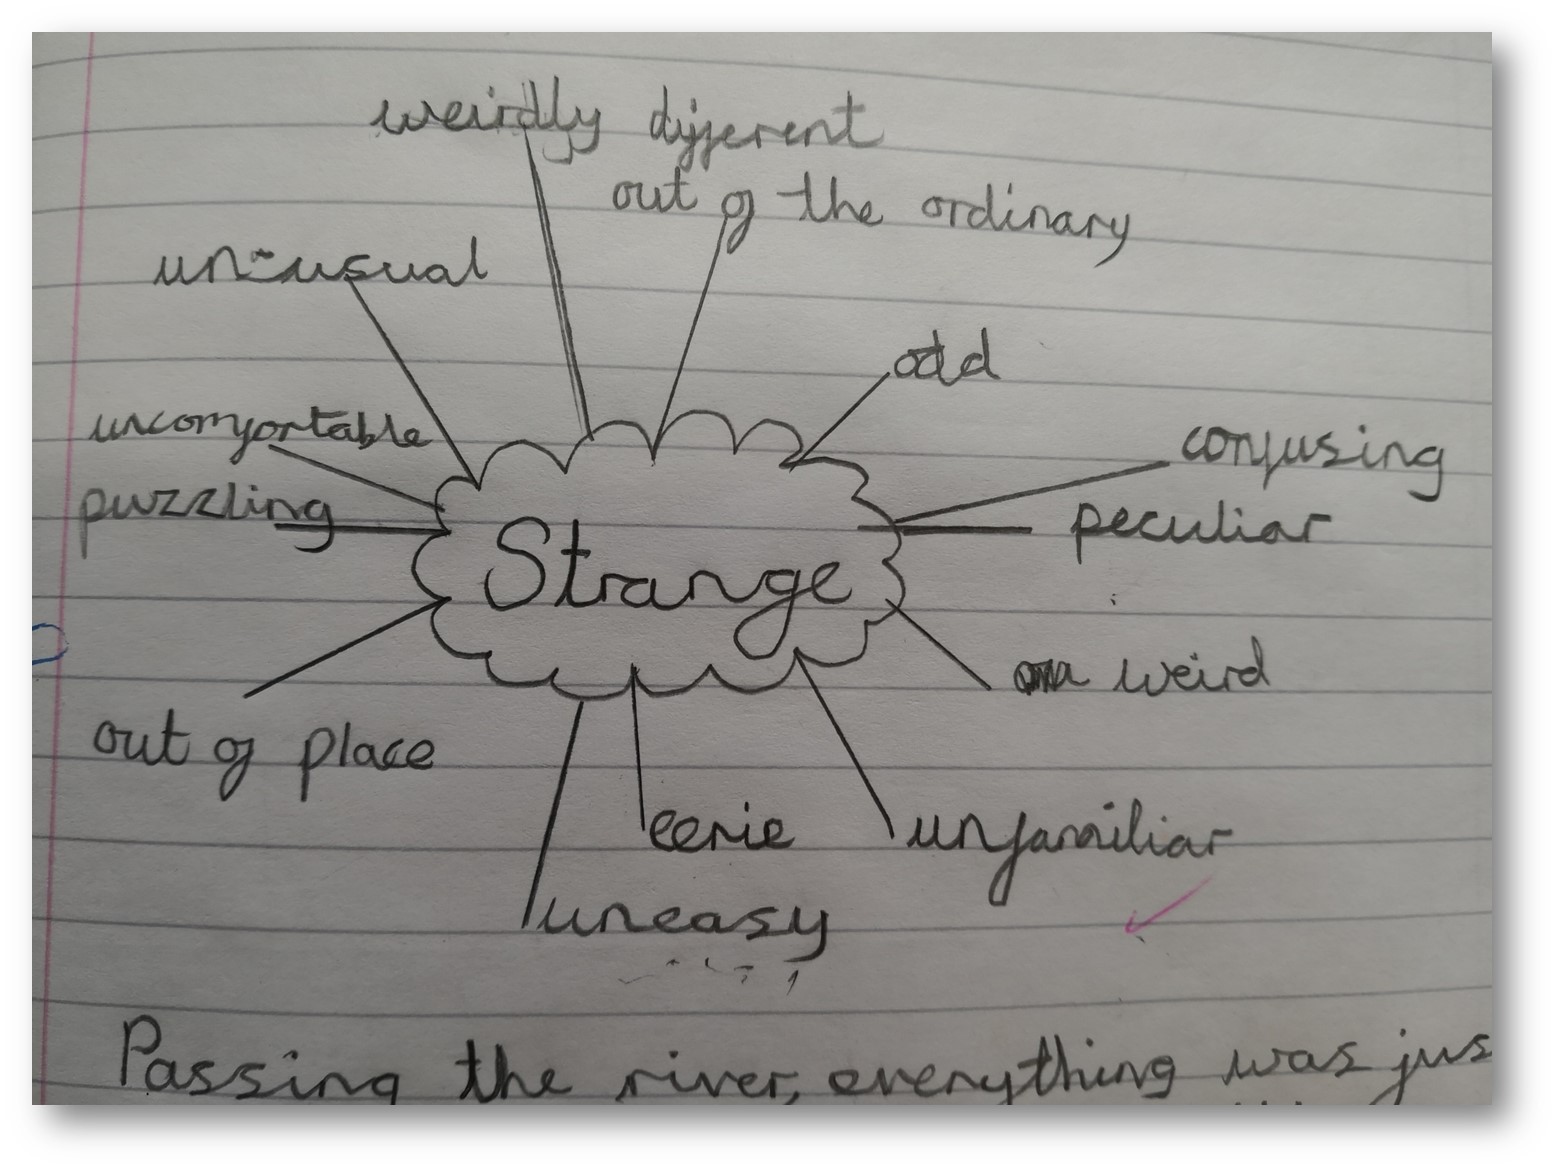 weirdly different
out of the ordinary
un-usual
odd
uncomfortable
confusing
puzzling
peculiar
Strange
weird
out of place
eerie
unfamiliar
uneasy
Passing the river, everything was jus